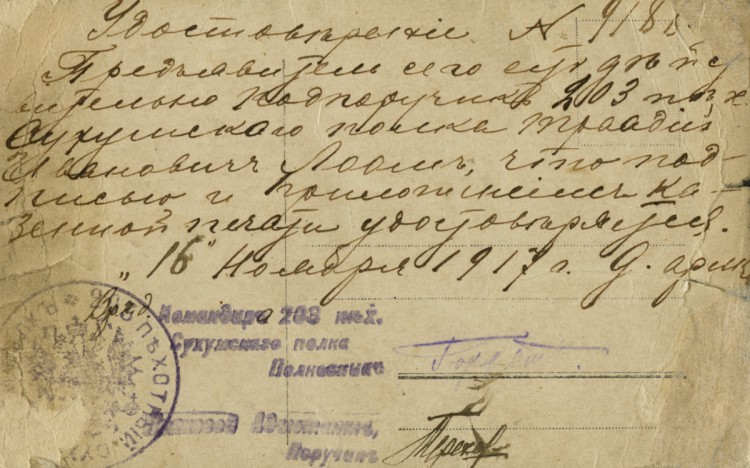 Удостовѣреніе №
Предъявитель сего есть дѣйс
вительно подпоручикъ 203 пѣх
Сухумскаго полка
Ивановичъ что под-
писью и приложеніемъ ка-
зенной печати удостовѣряется.
„16" Ноября 1917 г. Д. арм
Вр. и. д.
Командира 203 пѣх.
Сухумскаго полка
Полковникъ
Адъютантъ,
Поручикъ
ПѢХОТНЫЙ